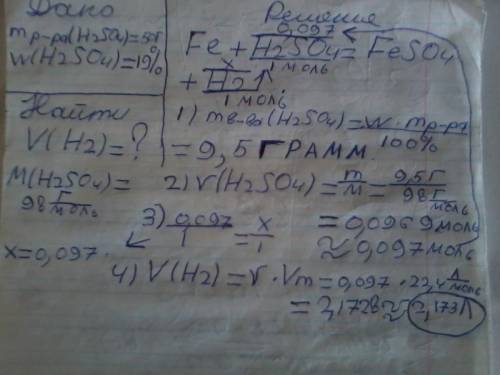 Дано
m р-ра(H2SO4)=50г
W(H2SO4)=19%
Найти
V(H2)=?
M(H2SO4)=
98 г/моль
Решение
0,097
Fe + H2SO4 = FeSO4
1 моль
x
+ H2↑
1 моль
1) m в-ва(H2SO4)=w·mр-ра/100%
= 9,5 ГРАММ.
2) ν(H2SO4)=m/M=9,5г/98г/моль
= 0,0969моль
≈0,097моль
3) 0,097/1 = x/1
x=0,097
4) V(H2)=ν·Vm=0,097·22,4 л/моль
= 2,1728≈2,173л